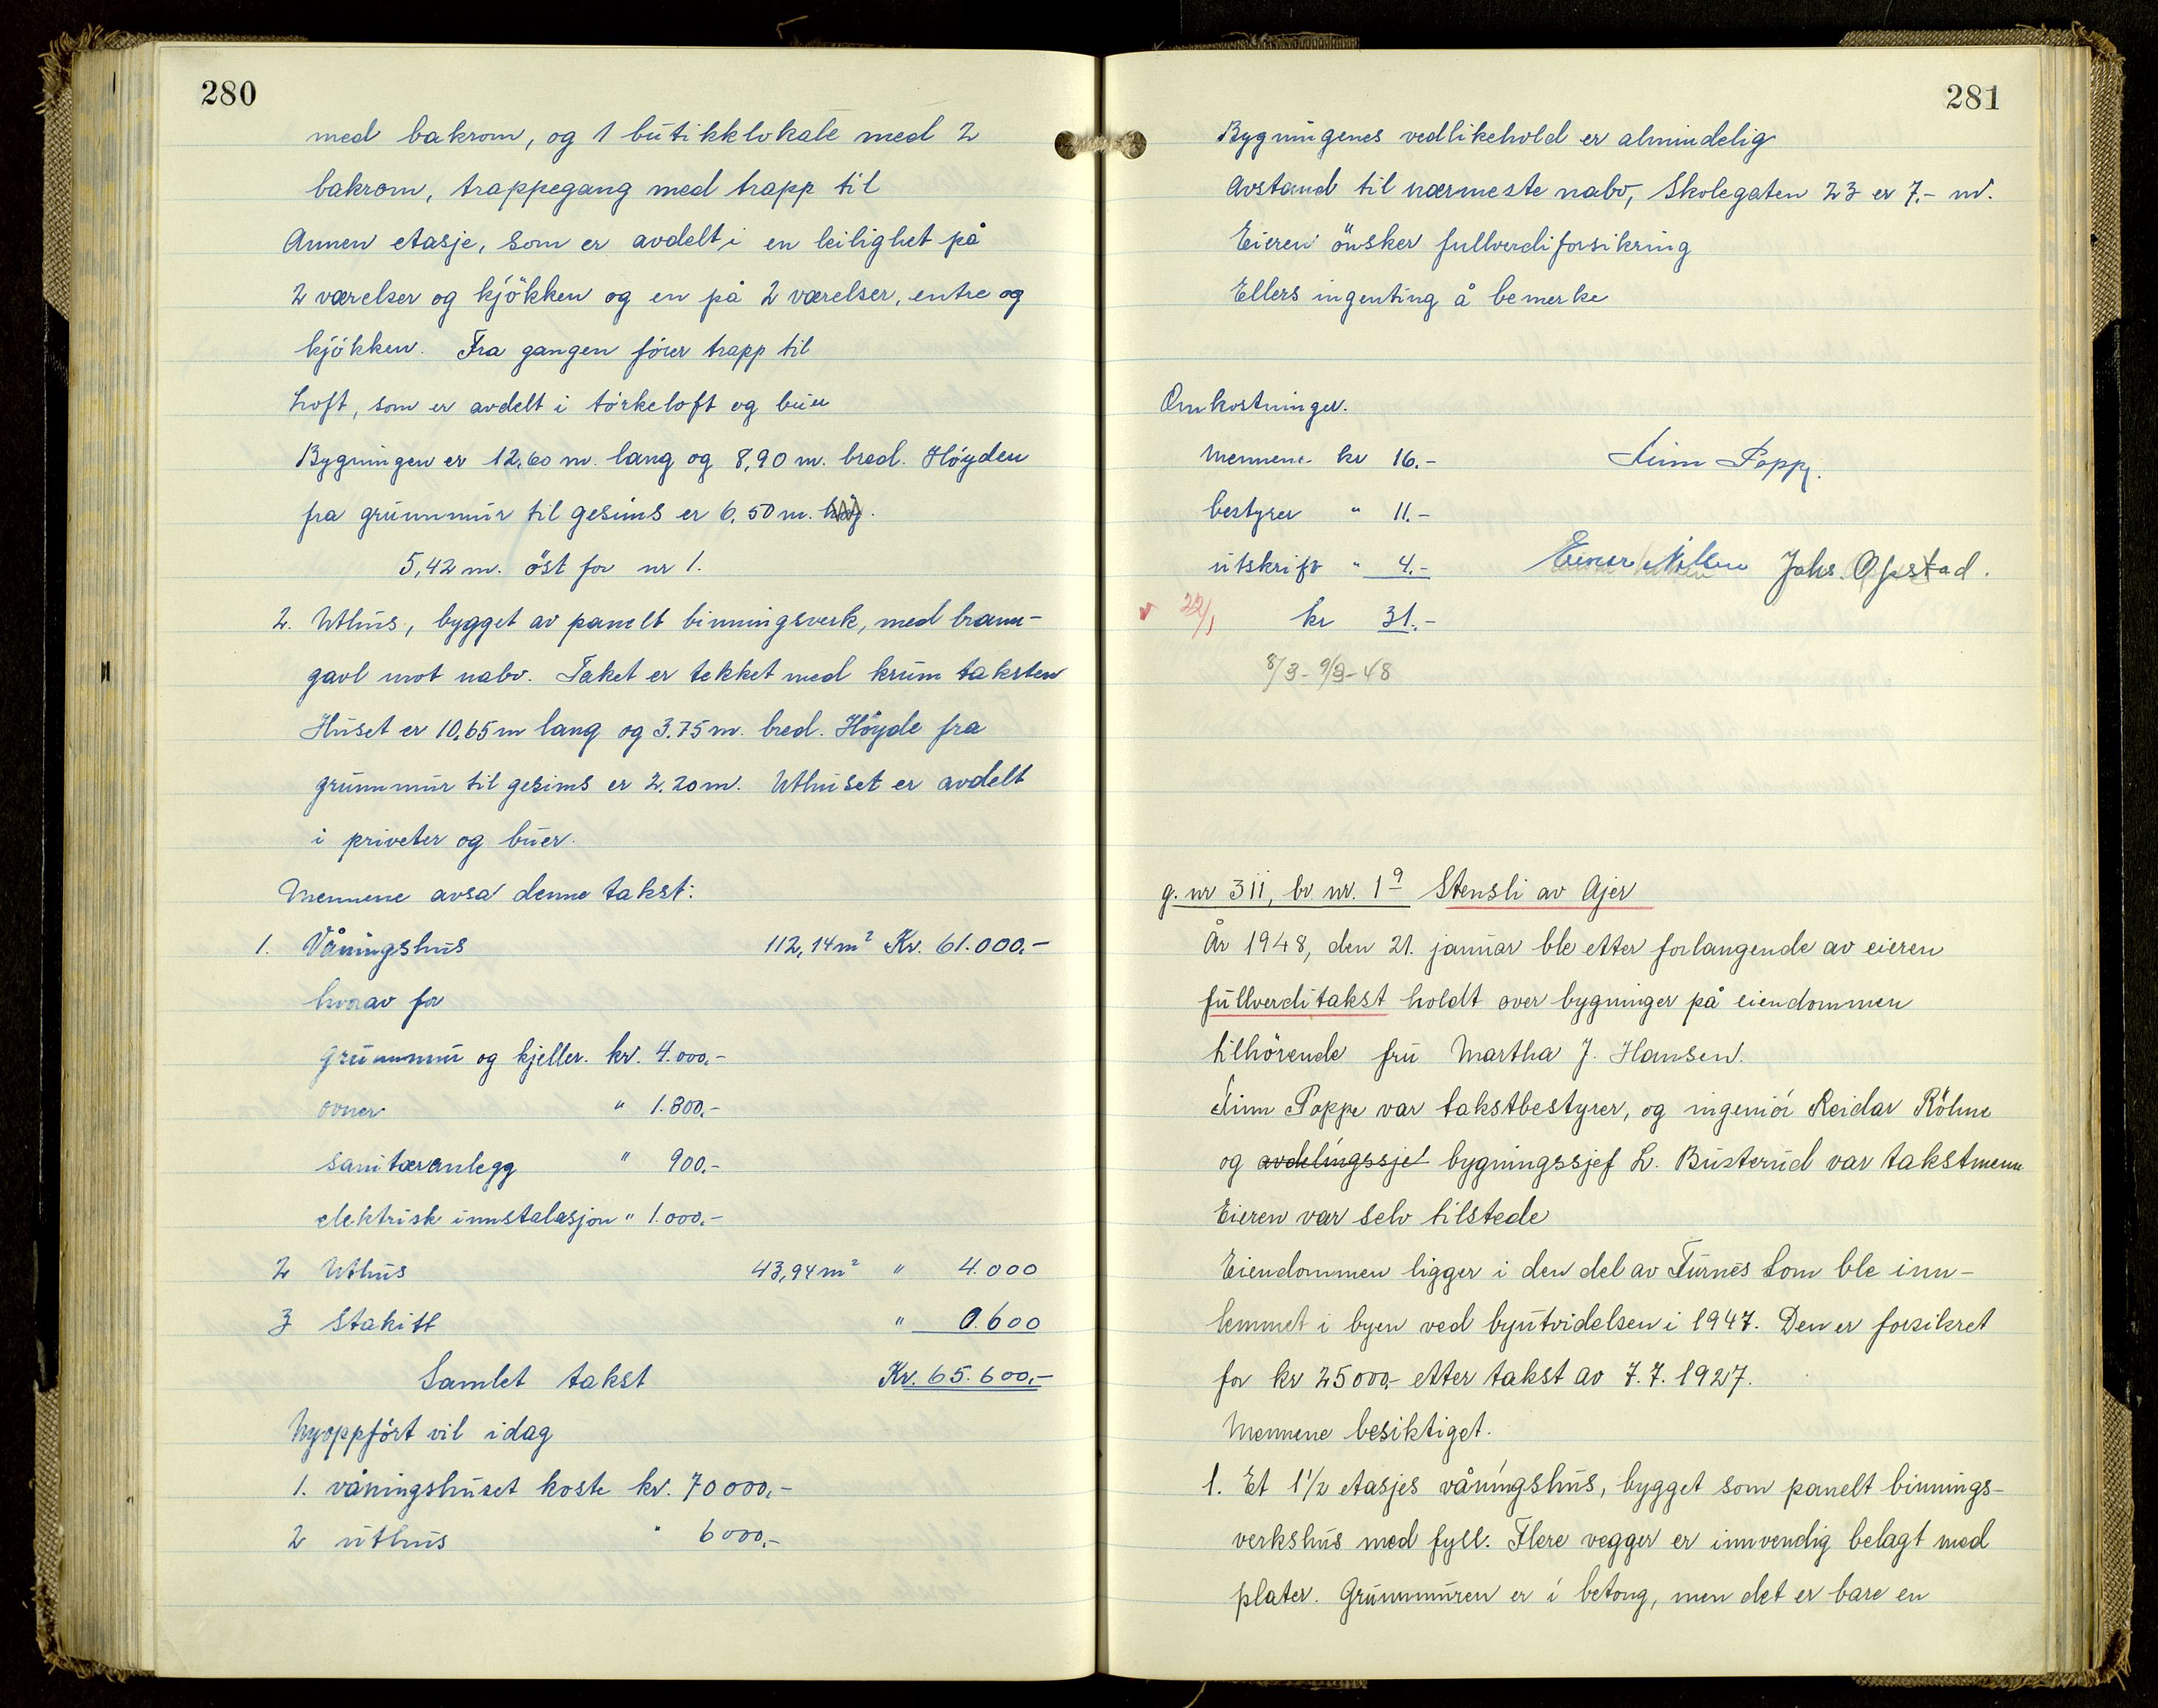 280
med bakrom, og 1 butikklokale med 2
bakrom, trappegang med trapp til
Annen etasje, som er avdelt i en leilighet på
2 værelser og kjökken og en på 2 værelser, entre og
kjökken. Fra gangen förer trapp til
Loft, som er avdelt i törkeloft og buer
Bygningen er 12,60 m. lang og 8,90 m. bred. Höyden
fra grunnmur til gesims er 6,50 m.
5,42 m. öst for nr 1.
2. Uthus, bygget av panelt binningsverk, med brann-
gavl mot nabo. Taket er tekket med krum taksten
Huset er 10,65 m lang og 3.75 m. bred. Höyde fra
grunnmur til gesims er 2,20 m. Uthuset er avdelt
i priveter og buer.
Mennene avsa denne takst:
1. Våningshus 112,14 m² Kr. 61.000,-
hvorav for
grunnmur og kjeller. kr. 4.000,-
ovner " 1.800,-
sanitæranlegg " 900,-
elektrisk innstalasjon " 1.000,-
2 Uthus 43,94 m² " 4.000
3 Stakitt " 0.600
Samlet takst Kr. 65.600,-
Nyoppfört vil idag
1. våningshuset koste kr. 70000,-
2 uthus " 6000,-
281
Bygningenes vedlikehold er almindelig
Avstand til nærmeste nabo, Skolegaten 23 er 7,- m.
Eieren önsker fullverdiforsikring
Ellers ingenting å bemerke
Omkostninger.
Mennene kr 16.-
Finn Poppe.
bestyrer " 11.-
utskrift " 4.-
Einar Nilsen Johs. Opstad.
v 22/1 kr 31.-
8/3 - 9/3-48
g. nr 311, br nr. 1⁹ Stensli av Ajer
År 1948, den 21. januar ble etter forlangende av eieren
fullverditakst holdt over bygninger på eiendommen
tilhörende fru Martha J. Hansen.
Finn Poppe var takstbestyrer, og ingeniör Reidar Röhne
og avdelingssjef bygningssjef L. Busterud var takstmenn
Eieren var selv tilstede
Eiendommen ligger i den del av Furnes som ble inn-
lemmet i byen ved byutvidelsen i 1947. Den er forsikret
for kr 25000,- etter takst av 7.7.1927.
Mennene besiktiget.
1. Et 1½ etasjes våningshus, bygget som panelt binnings-
verkshus med fyll. Flere vegger er innvendig belagt med
plater. Grunnmuren er i betong, men det er bare en